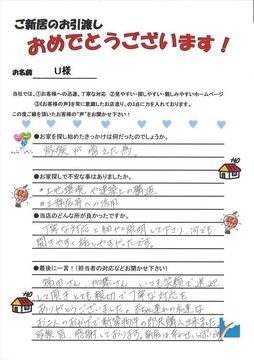 ご新居のお引渡し
おめでとうございます！
お名前 U様
当社では、①お客様への迅速、丁寧な対応 ②見やすい・探しやすい・親しみやすいホームページ
③《お客様の声》を常に意識したお店造り、の3点に力を入れております。
この度ご縁を頂いたお客様の“声”をお聞かせ下さい！
●お家を探し始めたきっかけは何だったのでしょうか。
家族が増えた為。
●お家探しで不安な事はありましたか。
・土地環境や建築上の
・土
●当店のどんな所が良かったですか。
丁寧な対応と細やかな説明して下さり、何でも
聞きやすく話しやすかったです。
●最後に一言！（担当者の対応などお聞かせ下さい）
いつも笑顔で送迎
して頂きとても親切で丁寧な対応を
ありがとうございました。
おかげで新築物件の即決購入出来ました。
家族皆、感謝しております。